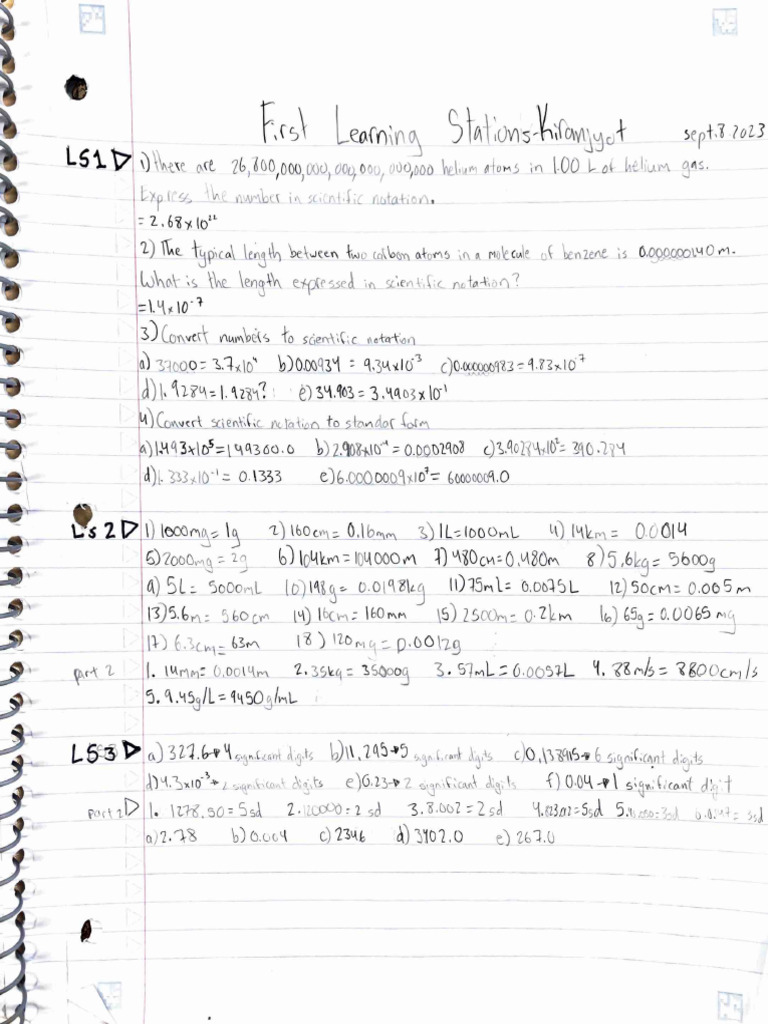 First Learning Stations-Kiranjyot sept.8.2023
LS1 1) there are 26,800,000,000,000,000,000,000 helium atoms in 1.00 L of helium gas.
Express the number in scientific notation.
= 2.68x10²²
2) The typical length between two carbon atoms in a molecule of benzene is 0.000000140m.
What is the length expressed in scientific notation?
=1.4x10⁻⁷
3) Convert numbers to scientific notation
a) 37000 = 3.7x10⁴ b) 0.00934 = 9.34x10⁻³ c) 0.000000983 = 9.83x10⁻⁷
d) 1.9284 = 1.9284? e) 34.903 = 3.4903x10⁻¹
4) Convert scientific notation to standar form
a) 1.493x10⁵ = 149300.0 b) 2.908x10⁻⁴ = 0.0002908 c) 3.90284x10² = 390.284
d) 1.333x10⁻¹ = 0.1333 e) 6.0000009x10⁷ = 60000009.0
LS 2 1) 1000mg = 1g 2) 160cm = 0.16mm 3) 1L = 1000mL 4) 14km = 0.0014
5) 2000mg = 2g 6) 104km = 104000m 7) 480cm = 0.480m 8) 5.6kg = 5600g
9) 5L = 5000mL 10) 198g = 0.0198kg 11) 75mL = 0.0075L 12) 50cm = 0.005m
13) 5.6m = 560cm 14) 16cm = 160mm 15) 2500m = 0.2km 16) 65g = 0.0065mg
17) 6.3cm = 63m 18) 120mg = 0.0012g
part 2 1. 14mm = 0.0014m 2. 35kg = 35000g 3. 57mL = 0.0057L 4. 88m/s = 8800cm/s
5. 9.45g/L = 9450g/mL
LS3 a) 327.6→4 significant digits b) 11.295→5 significant digits c) 0.138915→6 significant digits
d) 4.3x10⁻³→2 significant digits e) 0.23→2 significant digits f) 0.04→1 significant digit
part 2 1. 1278.50 = 5sd 2. 120000 = 2 sd 3. 8.002 = 2sd 4. 823.02 = 5sd
a) 2.78 b) 0.004 c) 2346 d) 3402.0 e) 267.0